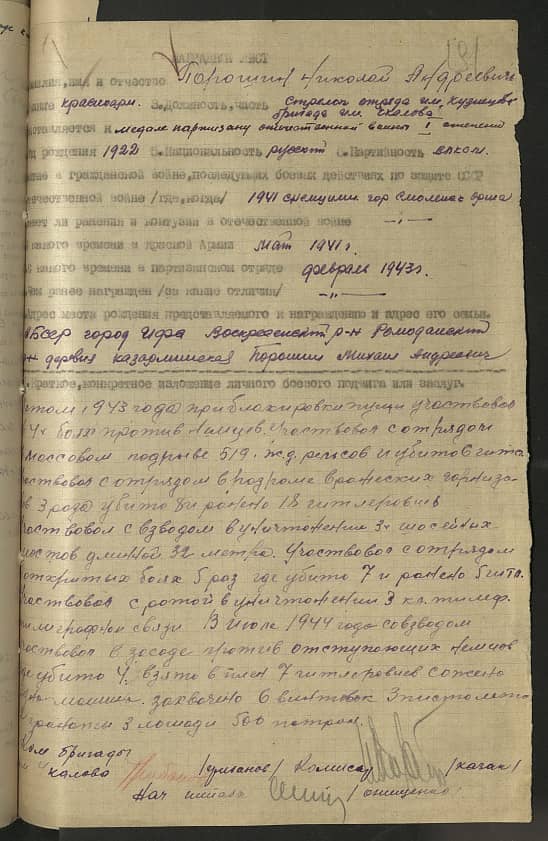 НАГРАДНОЙ ЛИСТ
амилия, имя и отчество Порошин Николай Андреевич
вание красноарм. 3. Должность, часть стрелок отряда им. Кузнецова
бригада им. Чкалова
дставляется к медале партизану отечественной войны I степени
од рождения 1922 5. Национальность русский 6. Партийность влксм.
астие в гражданской войне, последующих боевых действиях по защите СССР
отечественной войне /где, когда/ 1941 с немцами гор Смоленск Орша
меет ли ранения и контузии в отечественной войне —"—
какого времени в Красной Армии май 1941 г.
С какого времени в партизанском отряде февраль 1943 г.
Чем ранее награжден /за какие отличия/ —"—
Адрес места рождения представляемого к награждению и адрес его семьи.
город Уфа Воскресенский р-н
н деревня Порошин Михаил Андреевич
Краткое, конкретное изложение личного боевого подвига или заслуг.
етом 1943 года при блокировки пущи участвовал
4х боях против немцев. Участвовал с отрядом
массовом подрыве 519 ж.д. рельсов и убито 6 гитл.
аствовал с отрядом в розгроме вражеских гарнизо-
в 3 раза убито 8 и ранено 18 гитлеровцев
частвовал с взводом в уничтожении 3х шосейных
мостов длиной 32 метра. Участвовал с отрядом
открытых боях 5 раз где убито 7 и ранено 6 гитл.
частвовал с ротой в уничтожении 3 кл. тилеф.
телиграфной связи 13 Июля 1944 года со взводом
частвовал в засаде против отступающих немцев
де убито 4, взято в плен 7 гитлеровцев сожено
машин. захвачено 6 винтовок 3 пистолета
3 лошади 500 патрон.
Ком бригады
Чкалова Комисар /каган/
Нач штаба /онищенко/